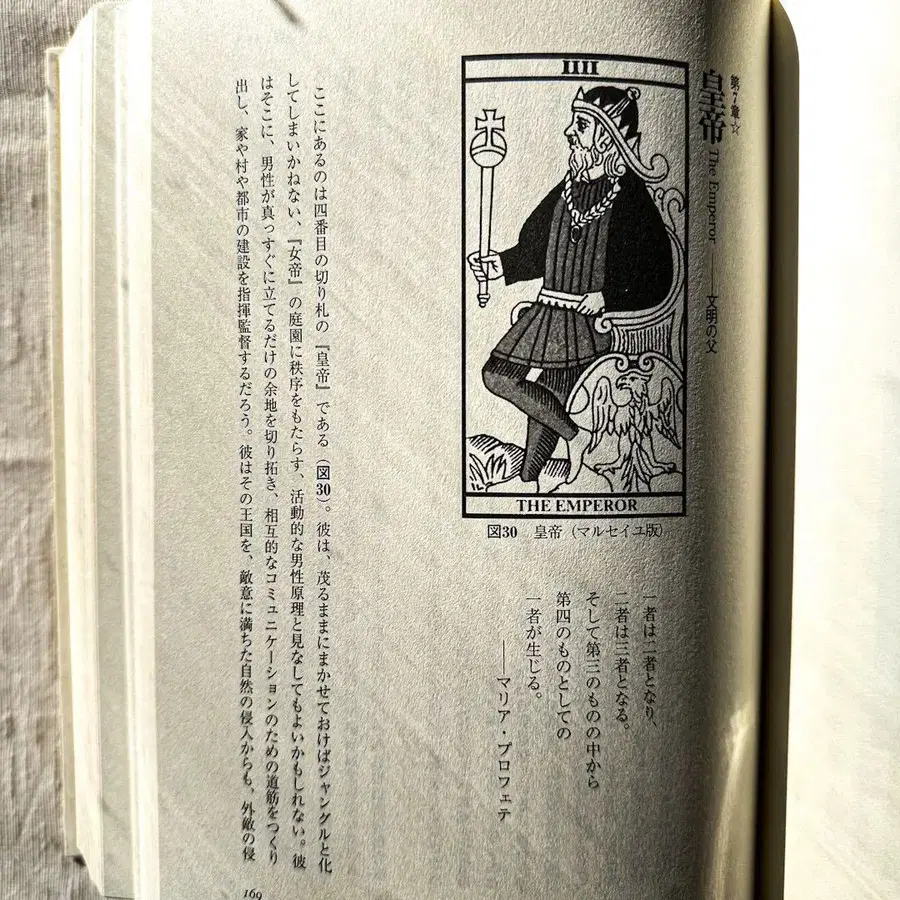 第7章☆
皇帝 The Emperor ——文明の父
IIII
THE EMPEROR
図30 皇帝（マルセイユ版）
一者は二者となり、
二者は三者となる。
そして第三のものの中から
第四のものとしての
一者が生じる。
——マリア・プロフェテ
ここにあるのは四番目の切り札の『皇帝』である（図30）。彼は、茂るままにまかせておけばジャングルと化
してしまいかねない、『女帝』の庭園に秩序をもたらす、活動的な男性原理と見なしてもよいかもしれない。彼
はそこに、男性が真っすぐに立てるだけの余地を切り拓き、相互的なコミュニケーションのための道筋をつくり
出し、家や村や都市の建設を指揮監督するだろう。彼はその王国を、敵意に満ちた自然の侵入からも、外敵の侵
169